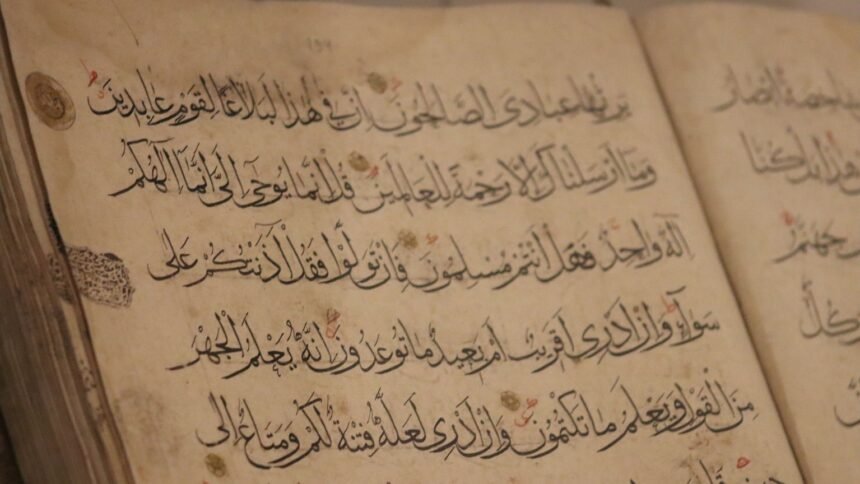 شاخصة أبصار
هذا بل كنا
جهنم
وكل
يرثها عبادي الصالحون إن في هذا لبلاغا لقوم عابدين
وما أرسلناك إلا رحمة للعالمين قل إنما يوحى إلي أنما إلهكم
إله واحد فهل أنتم مسلمون فإن تولوا فقل آذنتكم على
سواء وإن أدري أقريب أم بعيد ما توعدون إنه يعلم الجهر
من القول ويعلم ما تكتمون وإن أدري لعله فتنة لكم ومتاع إلى